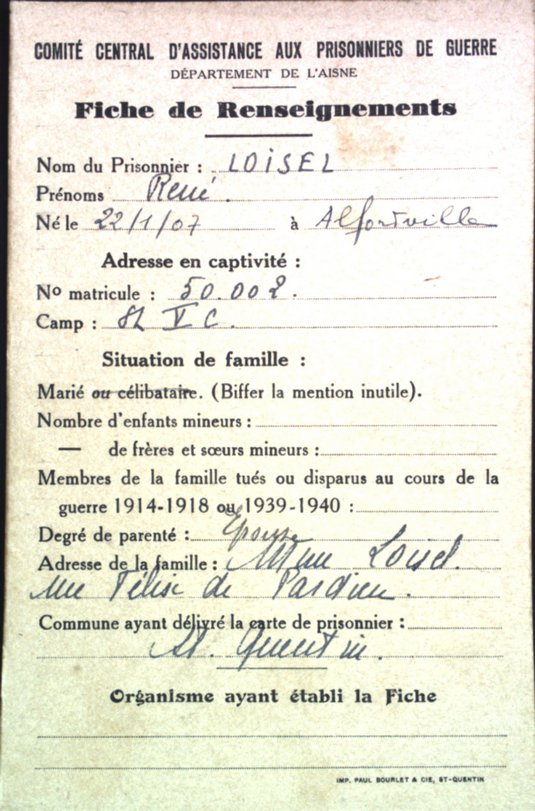 COMITÉ CENTRAL D'ASSISTANCE AUX PRISONNIERS DE GUERRE
DÉPARTEMENT DE L'AISNE
Fiche de Renseignements
Nom du Prisonnier : LOISEL
Prénoms René.
Né le 22/1/07 à Alfortville
Adresse en captivité :
No matricule : 50.002.
Camp : St V C.
Situation de famille :
Marié ou célibataire. (Biffer la mention inutile).
Nombre d'enfants mineurs :
— de frères et sœurs mineurs :
Membres de la famille tués ou disparus au cours de la
guerre 1914-1918 ou 1939-1940 :
Degré de parenté : Epouse
Adresse de la famille : Mme Loisel.
rue Félix de Pardieu.
Commune ayant délivré la carte de prisonnier :
St. Quentin.
Organisme ayant établi la Fiche
IMP. PAUL BOURLET & CIE, ST-QUENTIN